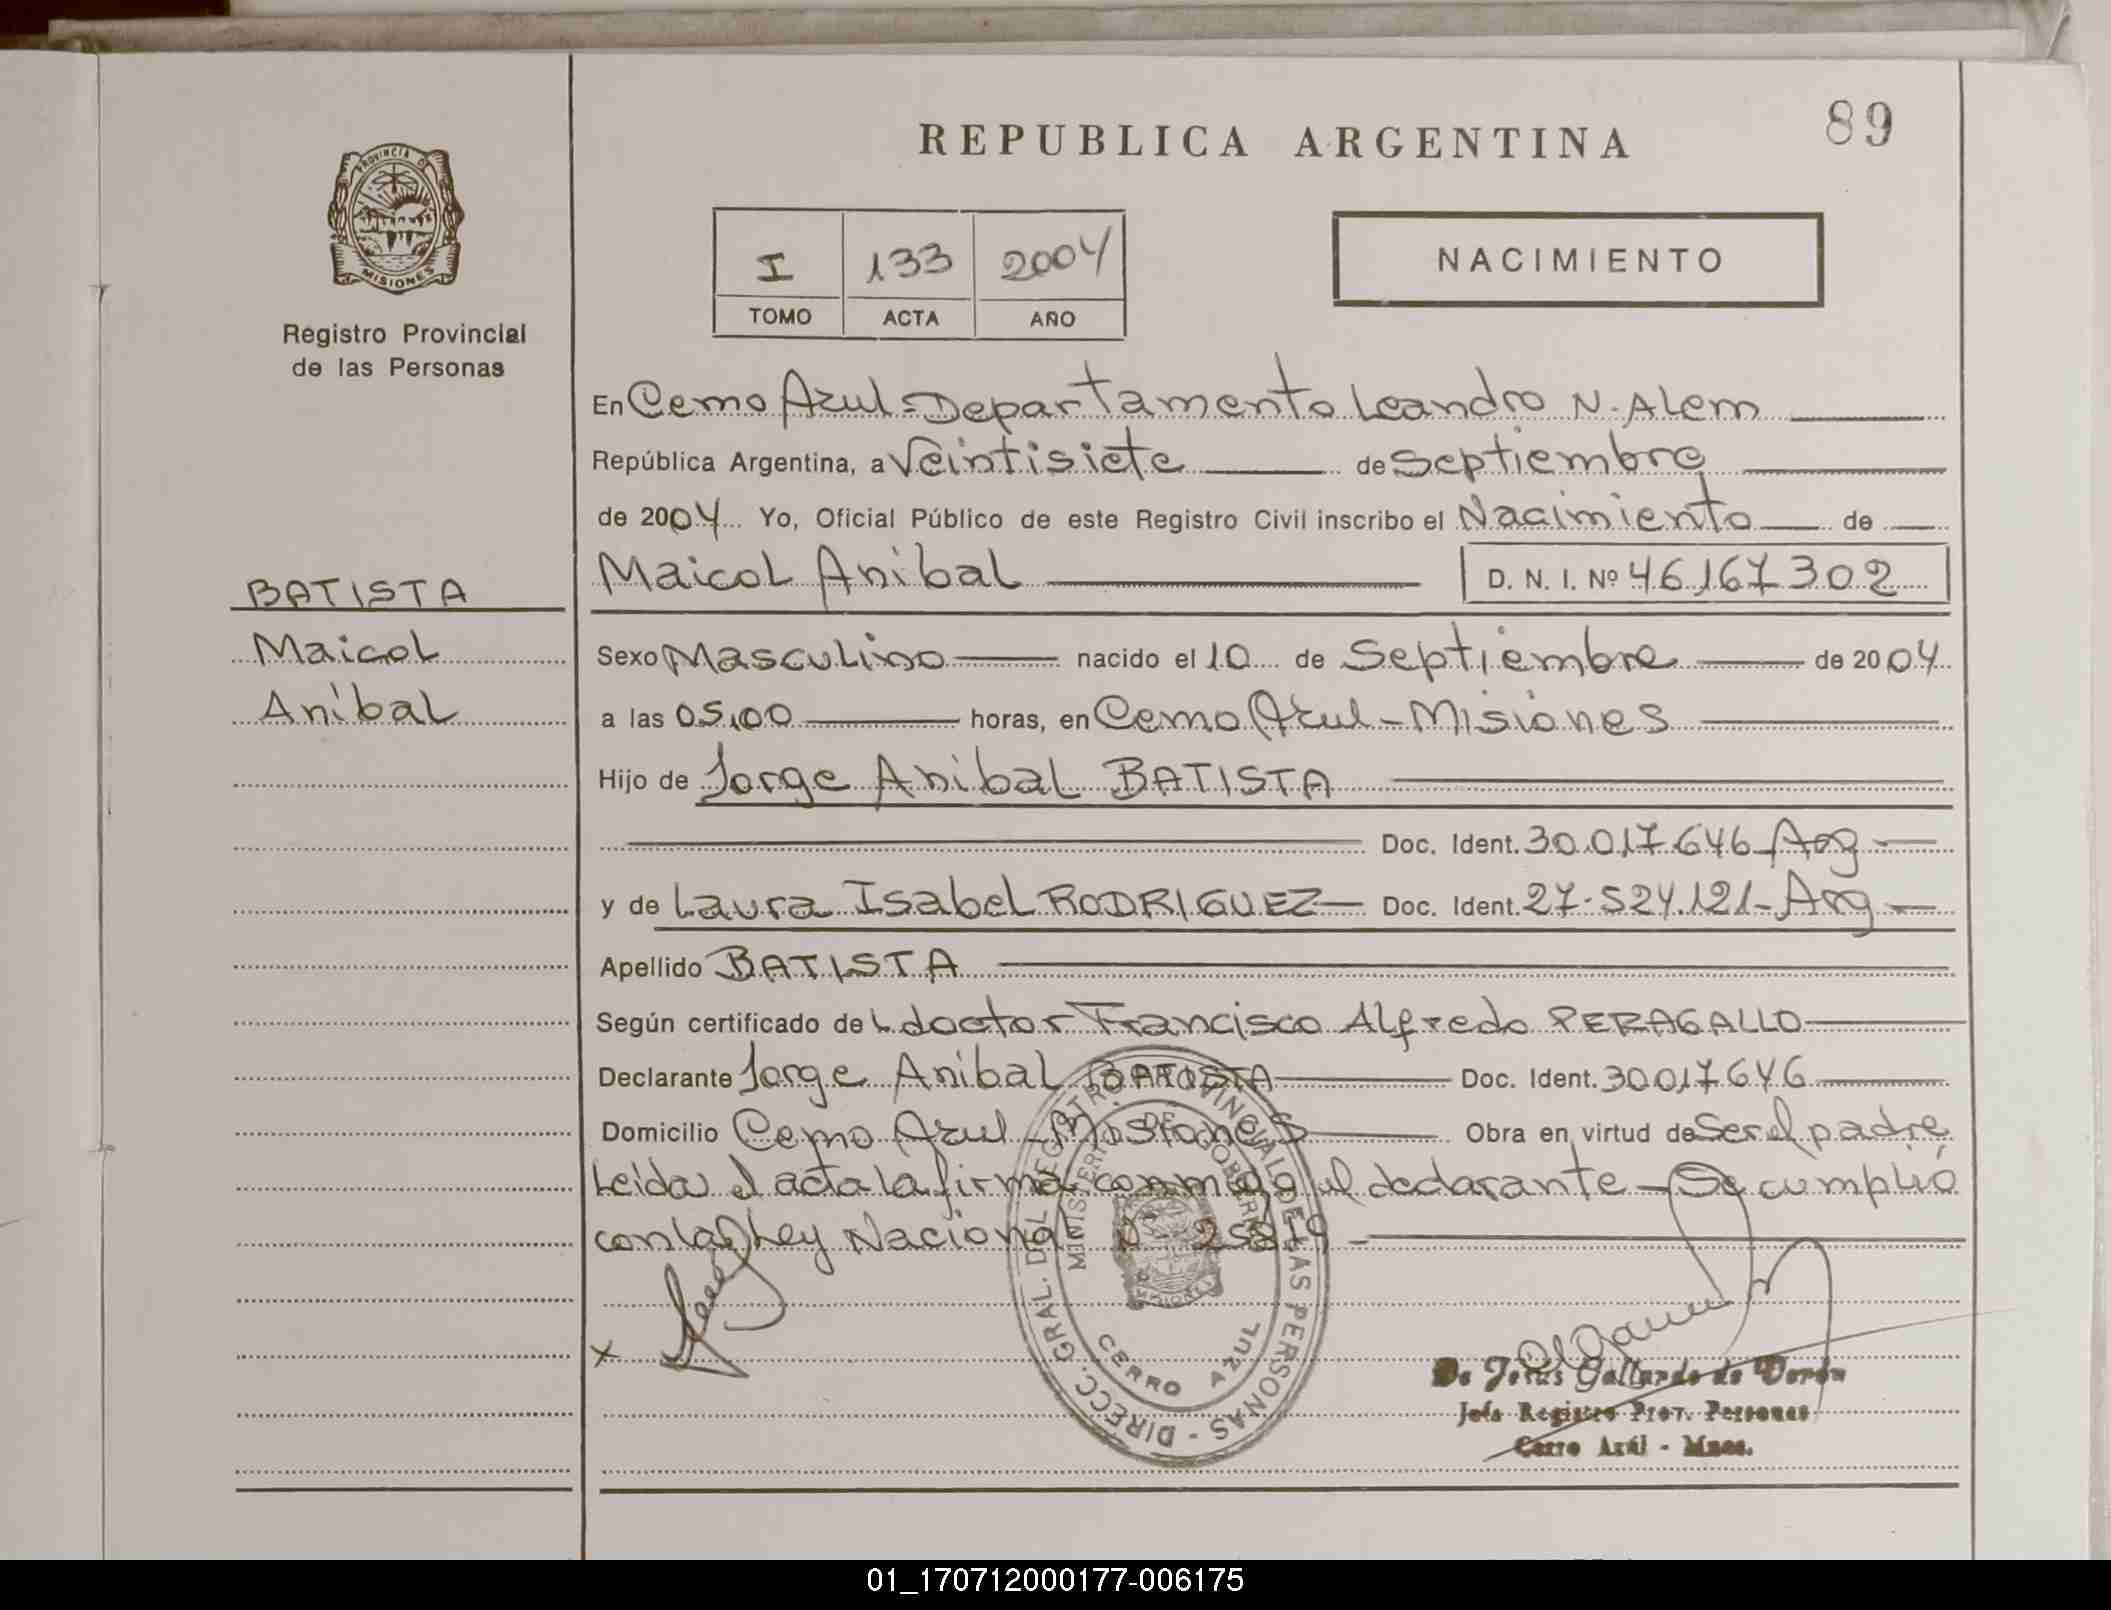 89
REPUBLICA ARGENTINA
PROVINCIA DE
MISIONES
Registro Provincial
de las Personas
I 133 2004
TOMO ACTA AÑO
NACIMIENTO
En Cerro Azul - Departamento Leandro N. Alem
República Argentina, a Veintisiete de Septiembre
de 2004 Yo, Oficial Público de este Registro Civil inscribo el Nacimiento de
BATISTA
Maicol Anibal D. N. I. Nº 46.167.302
Maicol
Sexo Masculino nacido el 10 de Septiembre de 2004
Anibal
a las 05,00 horas, en Cerro Azul - Misiones
Hijo de Jorge Anibal BATISTA
Doc. Ident. 30.017.646 - Arg
y de Laura Isabel RODRIGUEZ Doc. Ident. 27.524.121 - Arg
Apellido BATISTA
Según certificado del doctor Francisco Alfredo PERAGALLO
Declarante Jorge Anibal BATISTA Doc. Ident. 30.017.646
Domicilio Cerro Azul - Misiones Obra en virtud de Ser el padre
Leida el acta la firma conmigo el declarante - Se cumplió
con la Ley Nacional
DIRECC. GRAL. DEL REGISTRO PROVINCIAL DE LAS PERSONAS -
MINISTERIO DE GOBIERNO
MISIONES
CERRO AZUL
x
De Jesús Gallardo de Verón
Jefa Registro Prov. Personas
Cerro Azúl - Mnes.
01_170712000177-006175